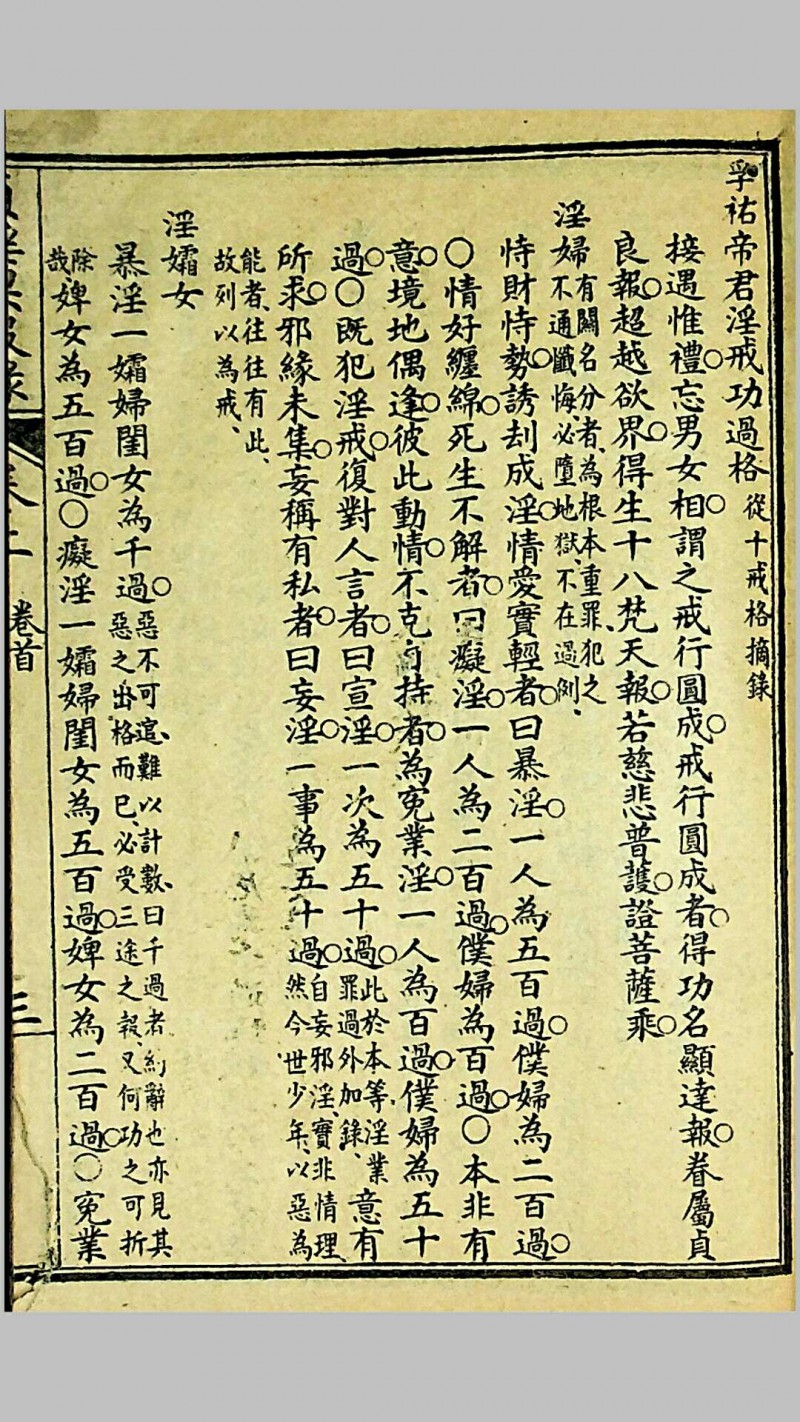 孚祐帝君淫戒功過格從十戒格摘錄
接遇惟禮。忘男女相。謂之戒行圓成。戒行圓成者。得功名顯達報。眷屬貞
良報。超越欲界。得生十八梵天報。若慈悲普護。證菩薩乘。
淫婦有關名分者、為根本重罪、犯之不通懺悔、必墮地獄、不在過例、
恃財恃勢。誘刦成淫。情愛實輕者。曰暴淫。一人為五百過。僕婦為二百過。
○情好纏綿。死生不解者。曰癡淫。一人為二百過。僕婦為百過。○本非有
意。境地偶逢。彼此動情。不克自持者。為寃業淫。一人為百過。僕婦為五十
過。○既犯淫戒。復對人言者。曰宣淫。一次為五十過。此於本等淫業罪過外加錄、意有
所求。邪緣未集。妄稱有私者。曰妄淫。一事為五十過。自妄邪淫、實非情理、然今世少年、以惡為
能者、往往有此、故列以為戒、
淫孀女
暴淫一孀婦閨女為千過。惡不可逭、難以計數、曰千過者、約辭也、亦見其惡之出格而已、必受三途之報、又何功之可折
除哉婢女為五百過。○癡淫一孀婦閨女為五百過。婢女為二百過。○寃業
卷首
三